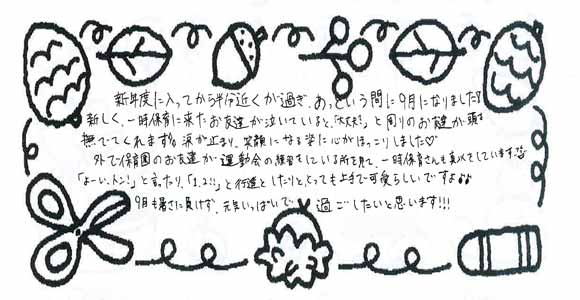 新年度に入ってから半分近くが過ぎ、あっという間に9月になりました!!
新しく、一時保育に来たお友達が泣いていると、「大丈夫!」と周りのお友達が頭を
撫でてくれます!! 涙が止まり、笑顔になる姿に心がほっこりしました♡
外で保育園のお友達が運動会の練習をしている所を見て、一時保育さんも真似をしています♪
「よーい、ドン!」と言ったり、「1,2!!」と行進をしたりと、とっても上手で可愛らしいですよ♪♪
9月も暑さに負けず、元気いっぱいで過ごしたいと思います!!!